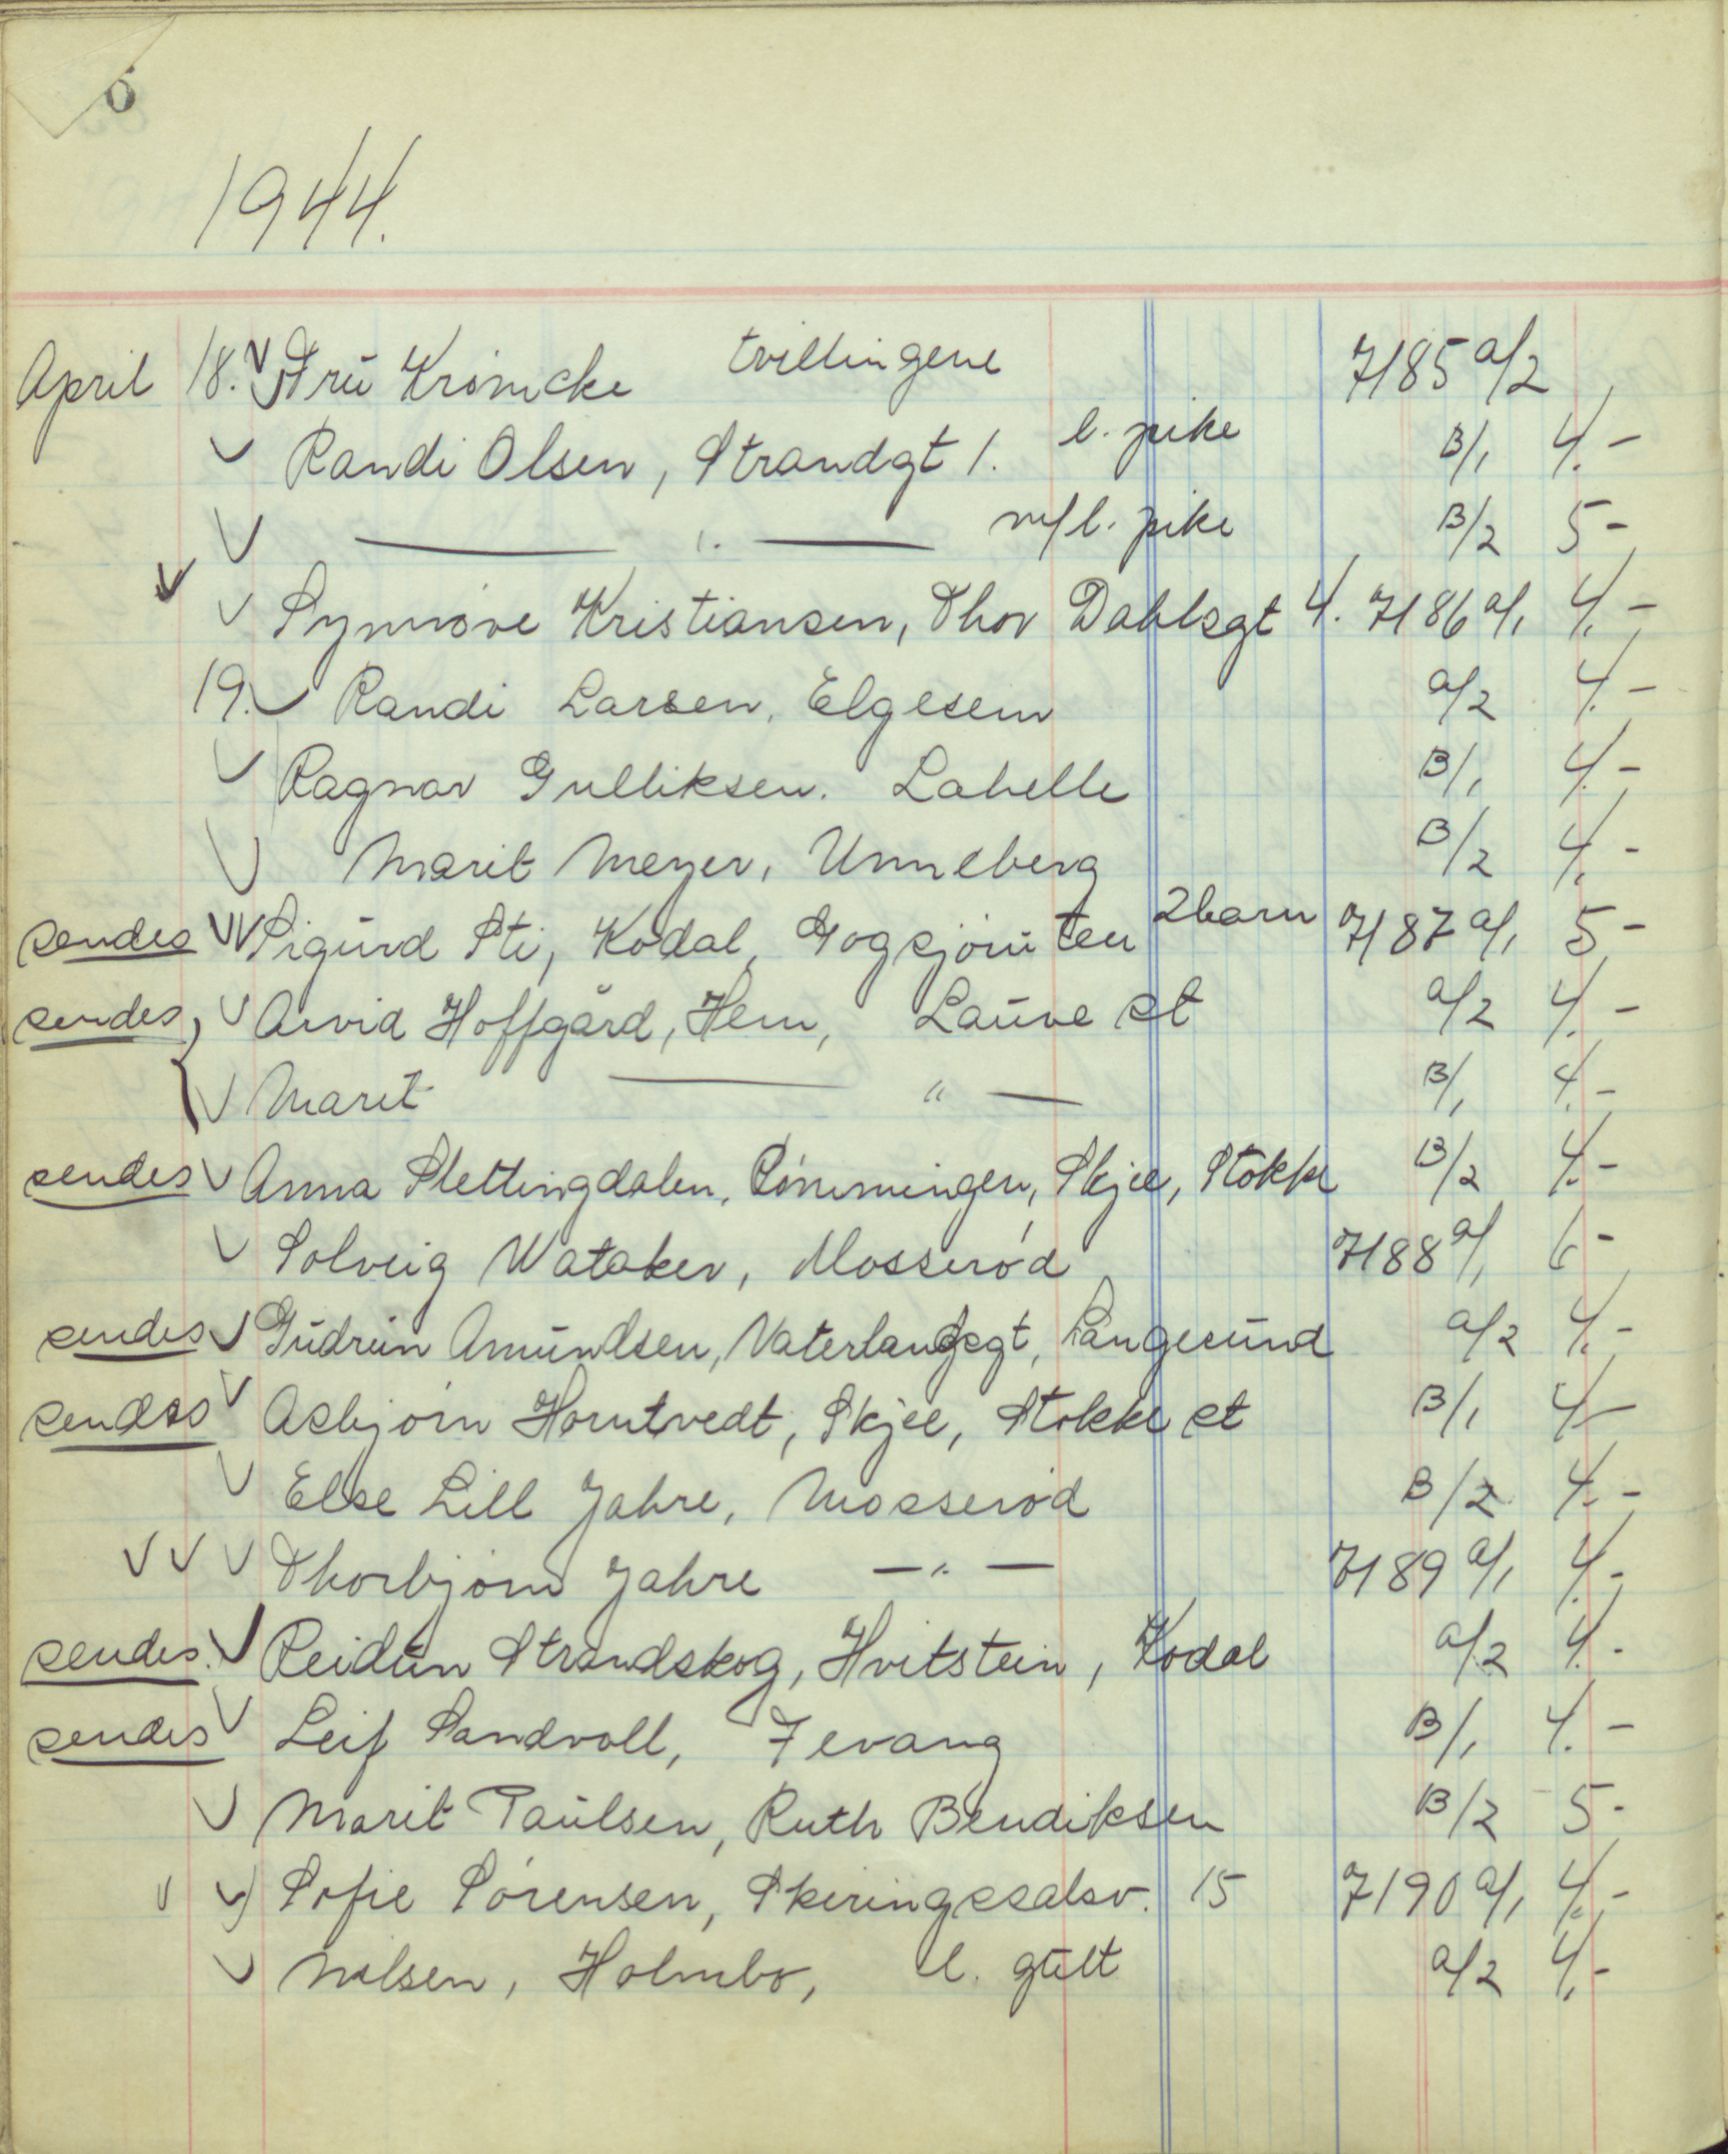 6
1944.
April 18. Fru Krömcke tvillingene 7185 a/2
Randi Olsen, Strandgt 1. l. pike B/1 4.-
— " — m/l. pike B/2 5-
Synnöve Kristiansen, Thor Dahlsgt 4. 7186 a/1 4.-
19. Randi Larsen, Elgesem a/2 4.-
Ragnar Gulliksen. Labelle B/1 4.-
Marit Meyer, Unneberg B/2 4.-
sendes Sigurd Sti, Kodal, Gogsjöruten 2 barn 7187 a/1 5-
sendes Arvid Hoffgård, Hem, Lauve st a/2 4.-
Marit — " — B/1 4.-
sendes Anna Slettingdalen, Rönningen, Skjee, Stokke B/2 4.-
Solveig Wataker, Mosseröd 7188 a/1 6-
sendes Gudrun Amundsen, Vaterlandsgt, Langesund a/2 4.-
sendes Asbjörn Horntvedt, Skjee, Stokke st B/1 4-
Else Lill Jahre, Mosseröd B/2 4.-
Thorbjörn Jahre — " — 7189 a/1 4.-
sendes. Reidun Strandskog, Hvitstein, Kodal a/2 4.-
sendes Leif Sandvoll, Fevang B/1 4.-
Marit Paulsen, Ruth Bendiksen B/2 5-
Sofie Sörensen, Skiringssalsv. 15 7190 a/1 4.-
Nilsen, Holmbo, l. gutt a/2 4.-